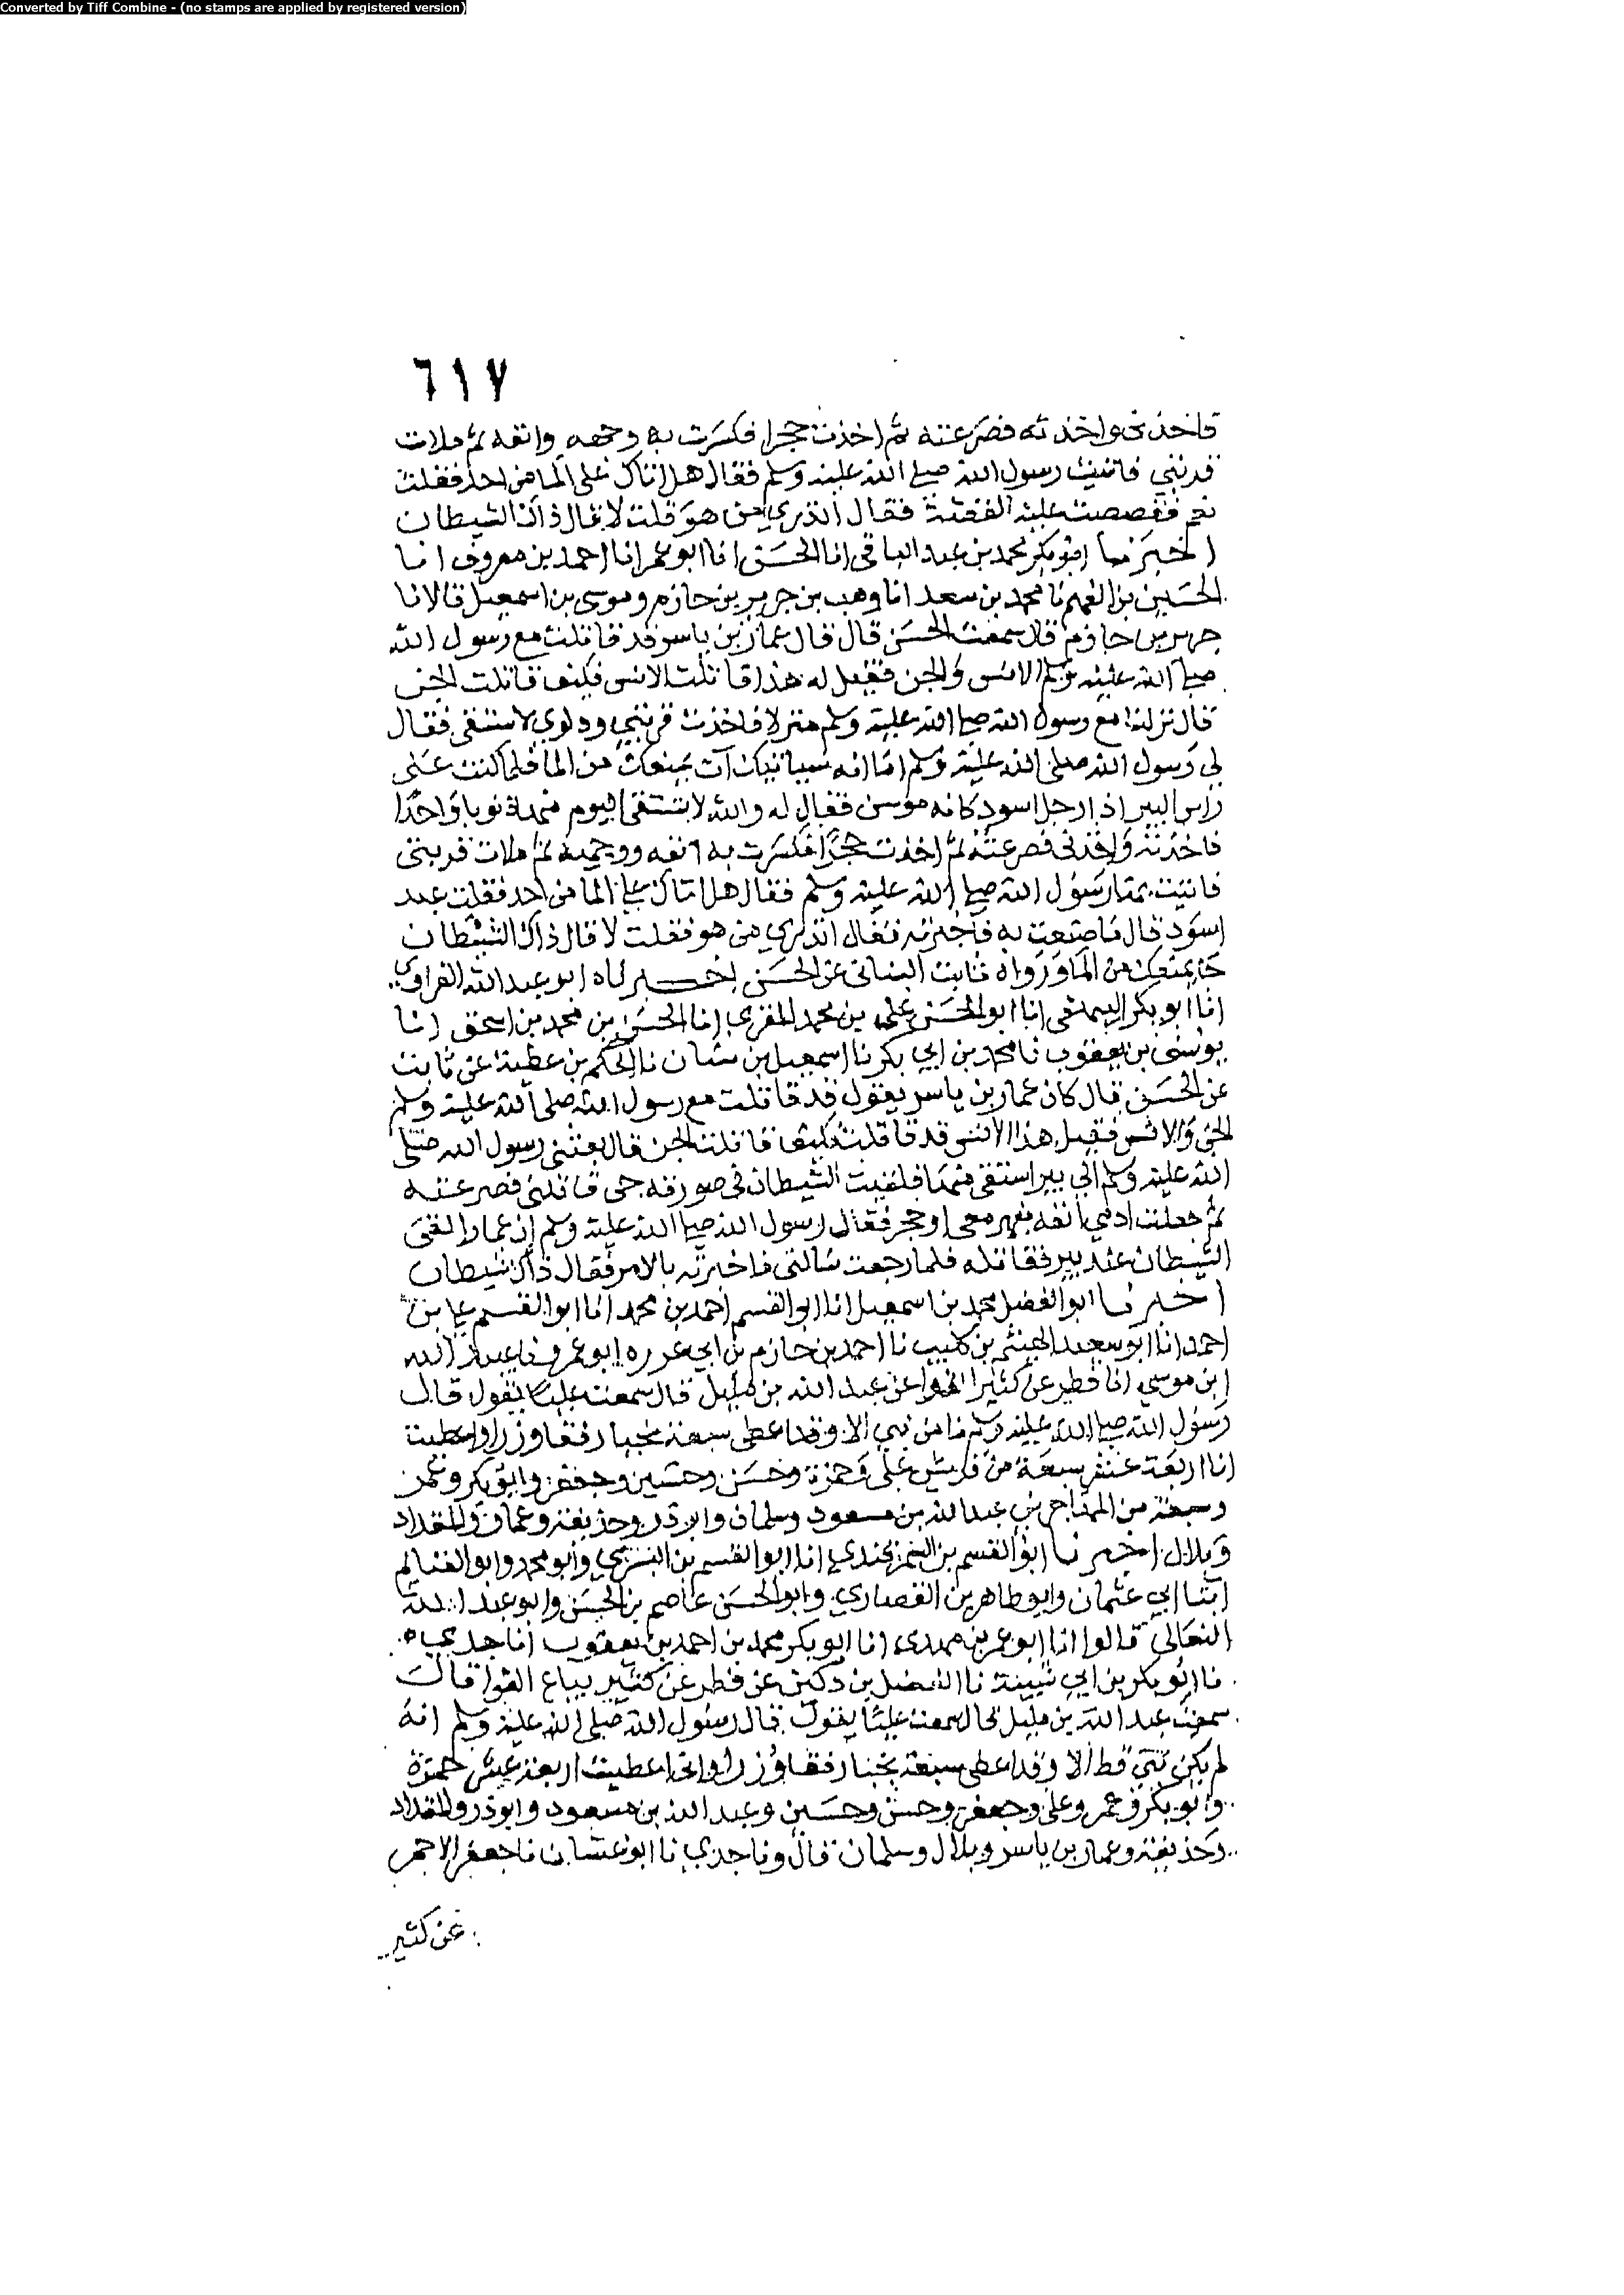 Converted by Tiff Combine - (no stamps are applied by registered version)
٦١٧
فاخذني واخذته فصرعته ثم اخذت حجرا فكسرت به وجهه وانفه ثم ملات
قربتي فاتيت رسول الله صلى الله عليه وسلم فقال هل اتاك على الما من احد فقلت
نعم فقصصت عليه القصة فقال اتدري من هو قلت لا قال ذاك الشيطان
اخبرنا ابو بكر محمد بن عبد الباقي انا الحسن انا ابو عمر انا احمد بن معروف انا
الحسين بن الفهم نا محمد بن سعد انا وهب بن جرير بن حازم وموسى بن اسمعيل قالا نا
جرير بن حازم قال سمعت الحسن قال قال عمار بن ياسر قد قاتلت مع رسول الله
صلى الله عليه وسلم الانس والجن فقيل له هذا قاتلت الانس فكيف قاتلت الجن
قال نزلنا مع رسول الله صلى الله عليه وسلم منزلا فاخذت قربتي ودلوي لاستقي فقال
لي رسول الله صلى الله عليه وسلم اما انه سياتيك آت يمنعك من الما فلما كنت على
راس البير اذا رجل اسود كانه مرس فقال له والله لا تستقي اليوم منها ذنوبا واحدا
فاخذته واخذني فصرعته ثم اخذت حجرا فكسرت به انفه ووجهه ثم ملات قربتي
فاتيت بها رسول الله صلى الله عليه وسلم فقال هل اتاك على الما من احد فقلت عبد
اسود قال ما صنعت به فاخبرته فقال اتدري من هو فقلت لا قال ذاك الشيطان
جا يمنعك من الما ورواه ثابت البناني عن الحسن اخبرناه ابو عبد الله الفراوي
انا ابو بكر البيهقي انا ابو الحسن علي بن محمد المقري انا الحسن بن محمد بن اسحق انا
يوسف بن يعقوب نا محمد بن ابي بكر نا اسمعيل بن سنان نا الحكم بن عطية عن ثابت
عن الحسن قال كان عمار بن ياسر يقول قد قاتلت مع رسول الله صلى الله عليه وسلم
الجن والانس فقيل هذا الانس قد قاتلت فكيف قاتلت الجن قال بعثني رسول الله صلى
الله عليه وسلم الى بير استقي منها فلقيت الشيطان في صورته حتى قاتلني فصرعته
ثم جعلت ادمي انفه بفهر معي او حجر فقال رسول الله صلى الله عليه وسلم ان عمارا لقي
الشيطان عند بير فقاتله فلما رجعت سالني فاخبرته بالامر فقال ذاك شيطان
اخبرنا ابو الفضل محمد بن اسمعيل انا ابو القسم احمد بن محمد انا ابو القسم علي بن
احمد انا ابو سعيد الهيثم بن كليب نا احمد بن حازم بن ابي غرزه ابو عمرو نا عبيد الله
ابن موسى انا فطر عن كثير النوا عن عبد الله بن مليل قال سمعت عليا يقول قال
رسول الله صلى الله عليه وسلم ما من نبي الا وقد اعطي سبعة نجبا رفقا وزرا واعطيت
انا اربعة عشر سبعة من قريش علي وحمزة وحسن وحسين وجعفر وابو بكر وعمر
وسبعة من المهاجرين عبد الله بن مسعود وسلمان وابو ذر وحذيفة وعمار والمقداد
وبلال اخبرنا ابو القسم بن السمرقندي انا ابو القسم بن البسري وابو محمد وابو الغنايم
ابنا ابي عثمان وابو طاهر بن القصاري وابو الحسن عاصم بن الحسن وابو عبد الله
النعالي قالوا انا ابو عمر بن مهدي انا ابو بكر محمد بن احمد بن يعقوب انا جدي
نا ابو بكر بن ابي شيبة نا الفضل بن دكين عن فطر عن كثير بياع النوا قال
سمعت عبد الله بن مليل قال سمعت عليا يقول قال رسول الله صلى الله عليه وسلم انه
لم يكن نبي قط الا وقد اعطي سبعة نجبا رفقا وزرا واني اعطيت اربعة عشر حمزة
وابو بكر وعمر وعلي وجعفر وحسن وحسين وعبد الله بن مسعود وابو ذر والمقداد
وحذيفة وعمار بن ياسر وبلال وسلمان قال ونا جدي نا ابو غسان نا جعفر الاحمر
عن كثير